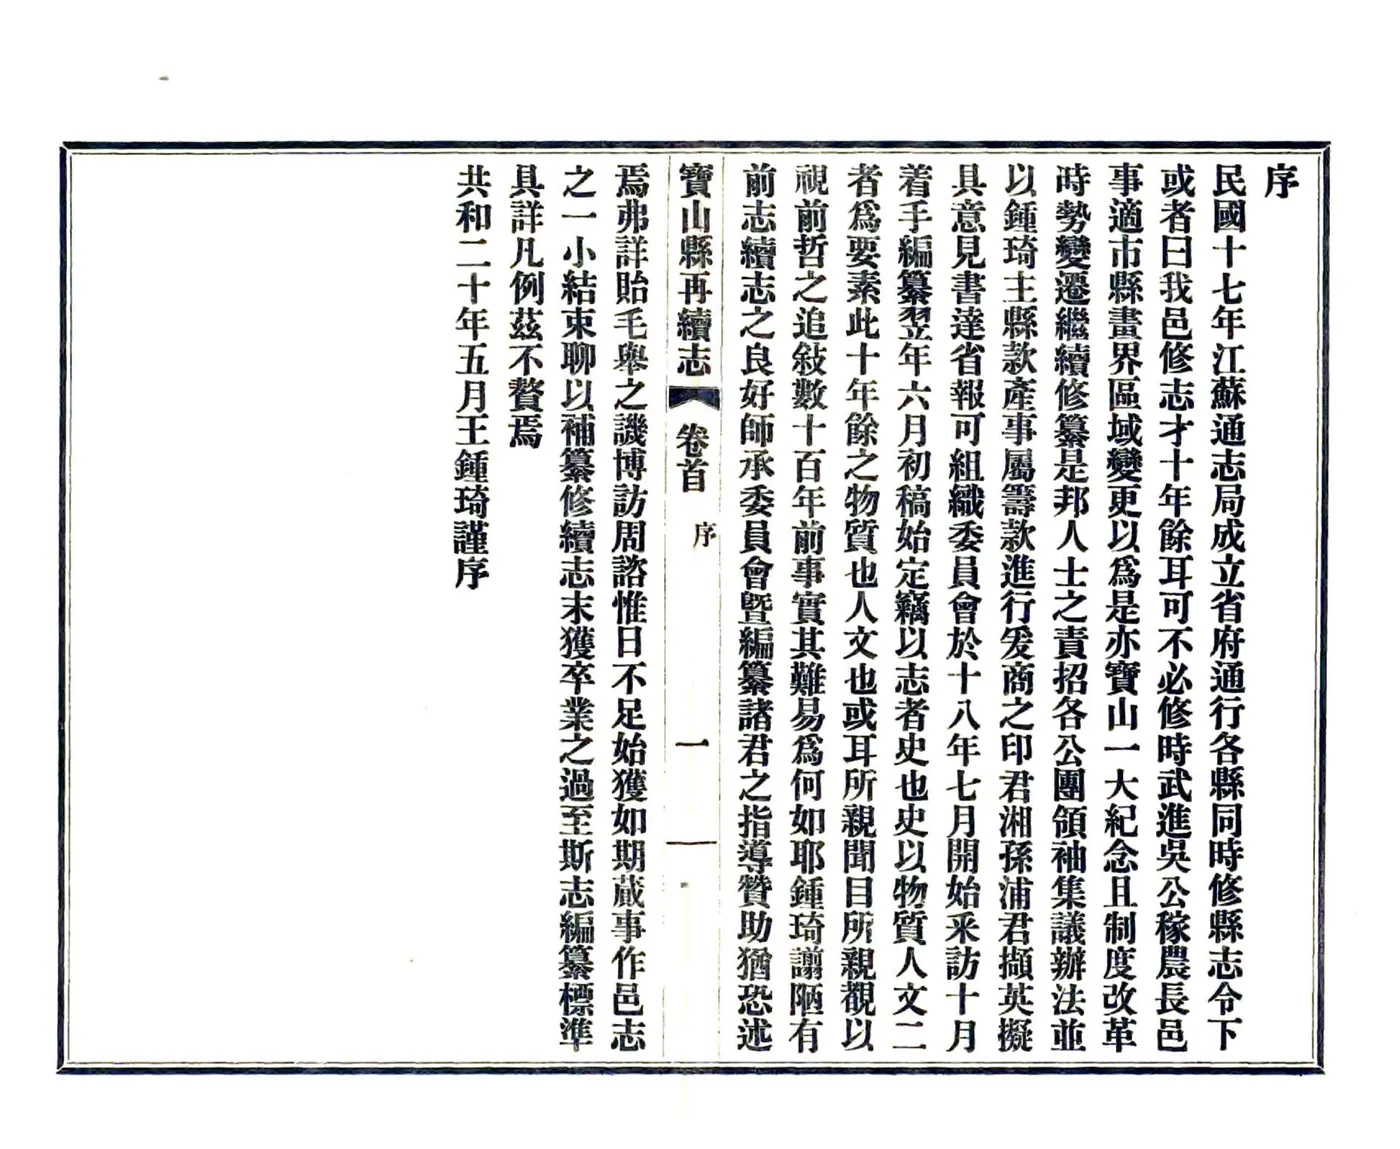 序
民國十七年江蘇通志局成立省府通行各縣同時修縣志令下
或者曰我邑修志才十年餘耳可不必修時武進吳公稼農長邑
事適市縣畫界區域變更以爲是亦寶山一大紀念且制度改革
時勢變遷繼續修纂是邦人士之責招各公團領袖集議辦法並
以鍾琦主縣款產事屬籌款進行爰商之印君湘孫浦君擷英擬
具意見書達省報可組織委員會於十八年七月開始釆訪十月
着手編纂翌年六月初稿始定竊以志者史也史以物質人文二
者爲要素此十年餘之物質也人文也或耳所親聞目所親覩以
視前哲之追敍數十百年前事實其難易爲何如耶鍾琦譾陋有
前志續志之良好師承委員會曁編纂諸君之指導贊助猶恐述
寶山縣再續志 卷首 序 一
焉弗詳貽毛舉之譏博訪周諮惟日不足始獲如期蕆事作邑志
之一小結束聊以補纂修續志末獲卒業之過至斯志編纂標準
具詳凡例茲不贅焉
共和二十年五月王鍾琦謹序